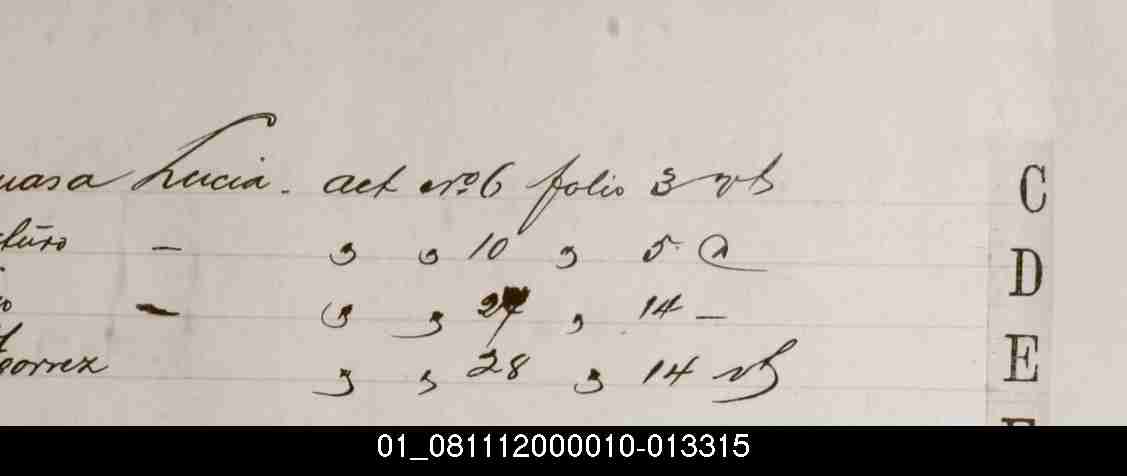 uasa Lucia. act nro 6 folio 3 vto
C
cturo — " " 10 " 5. a
D
— " " 27 " 14 —
correz " " 28 " 14 vto
E
01_081112000010-013315